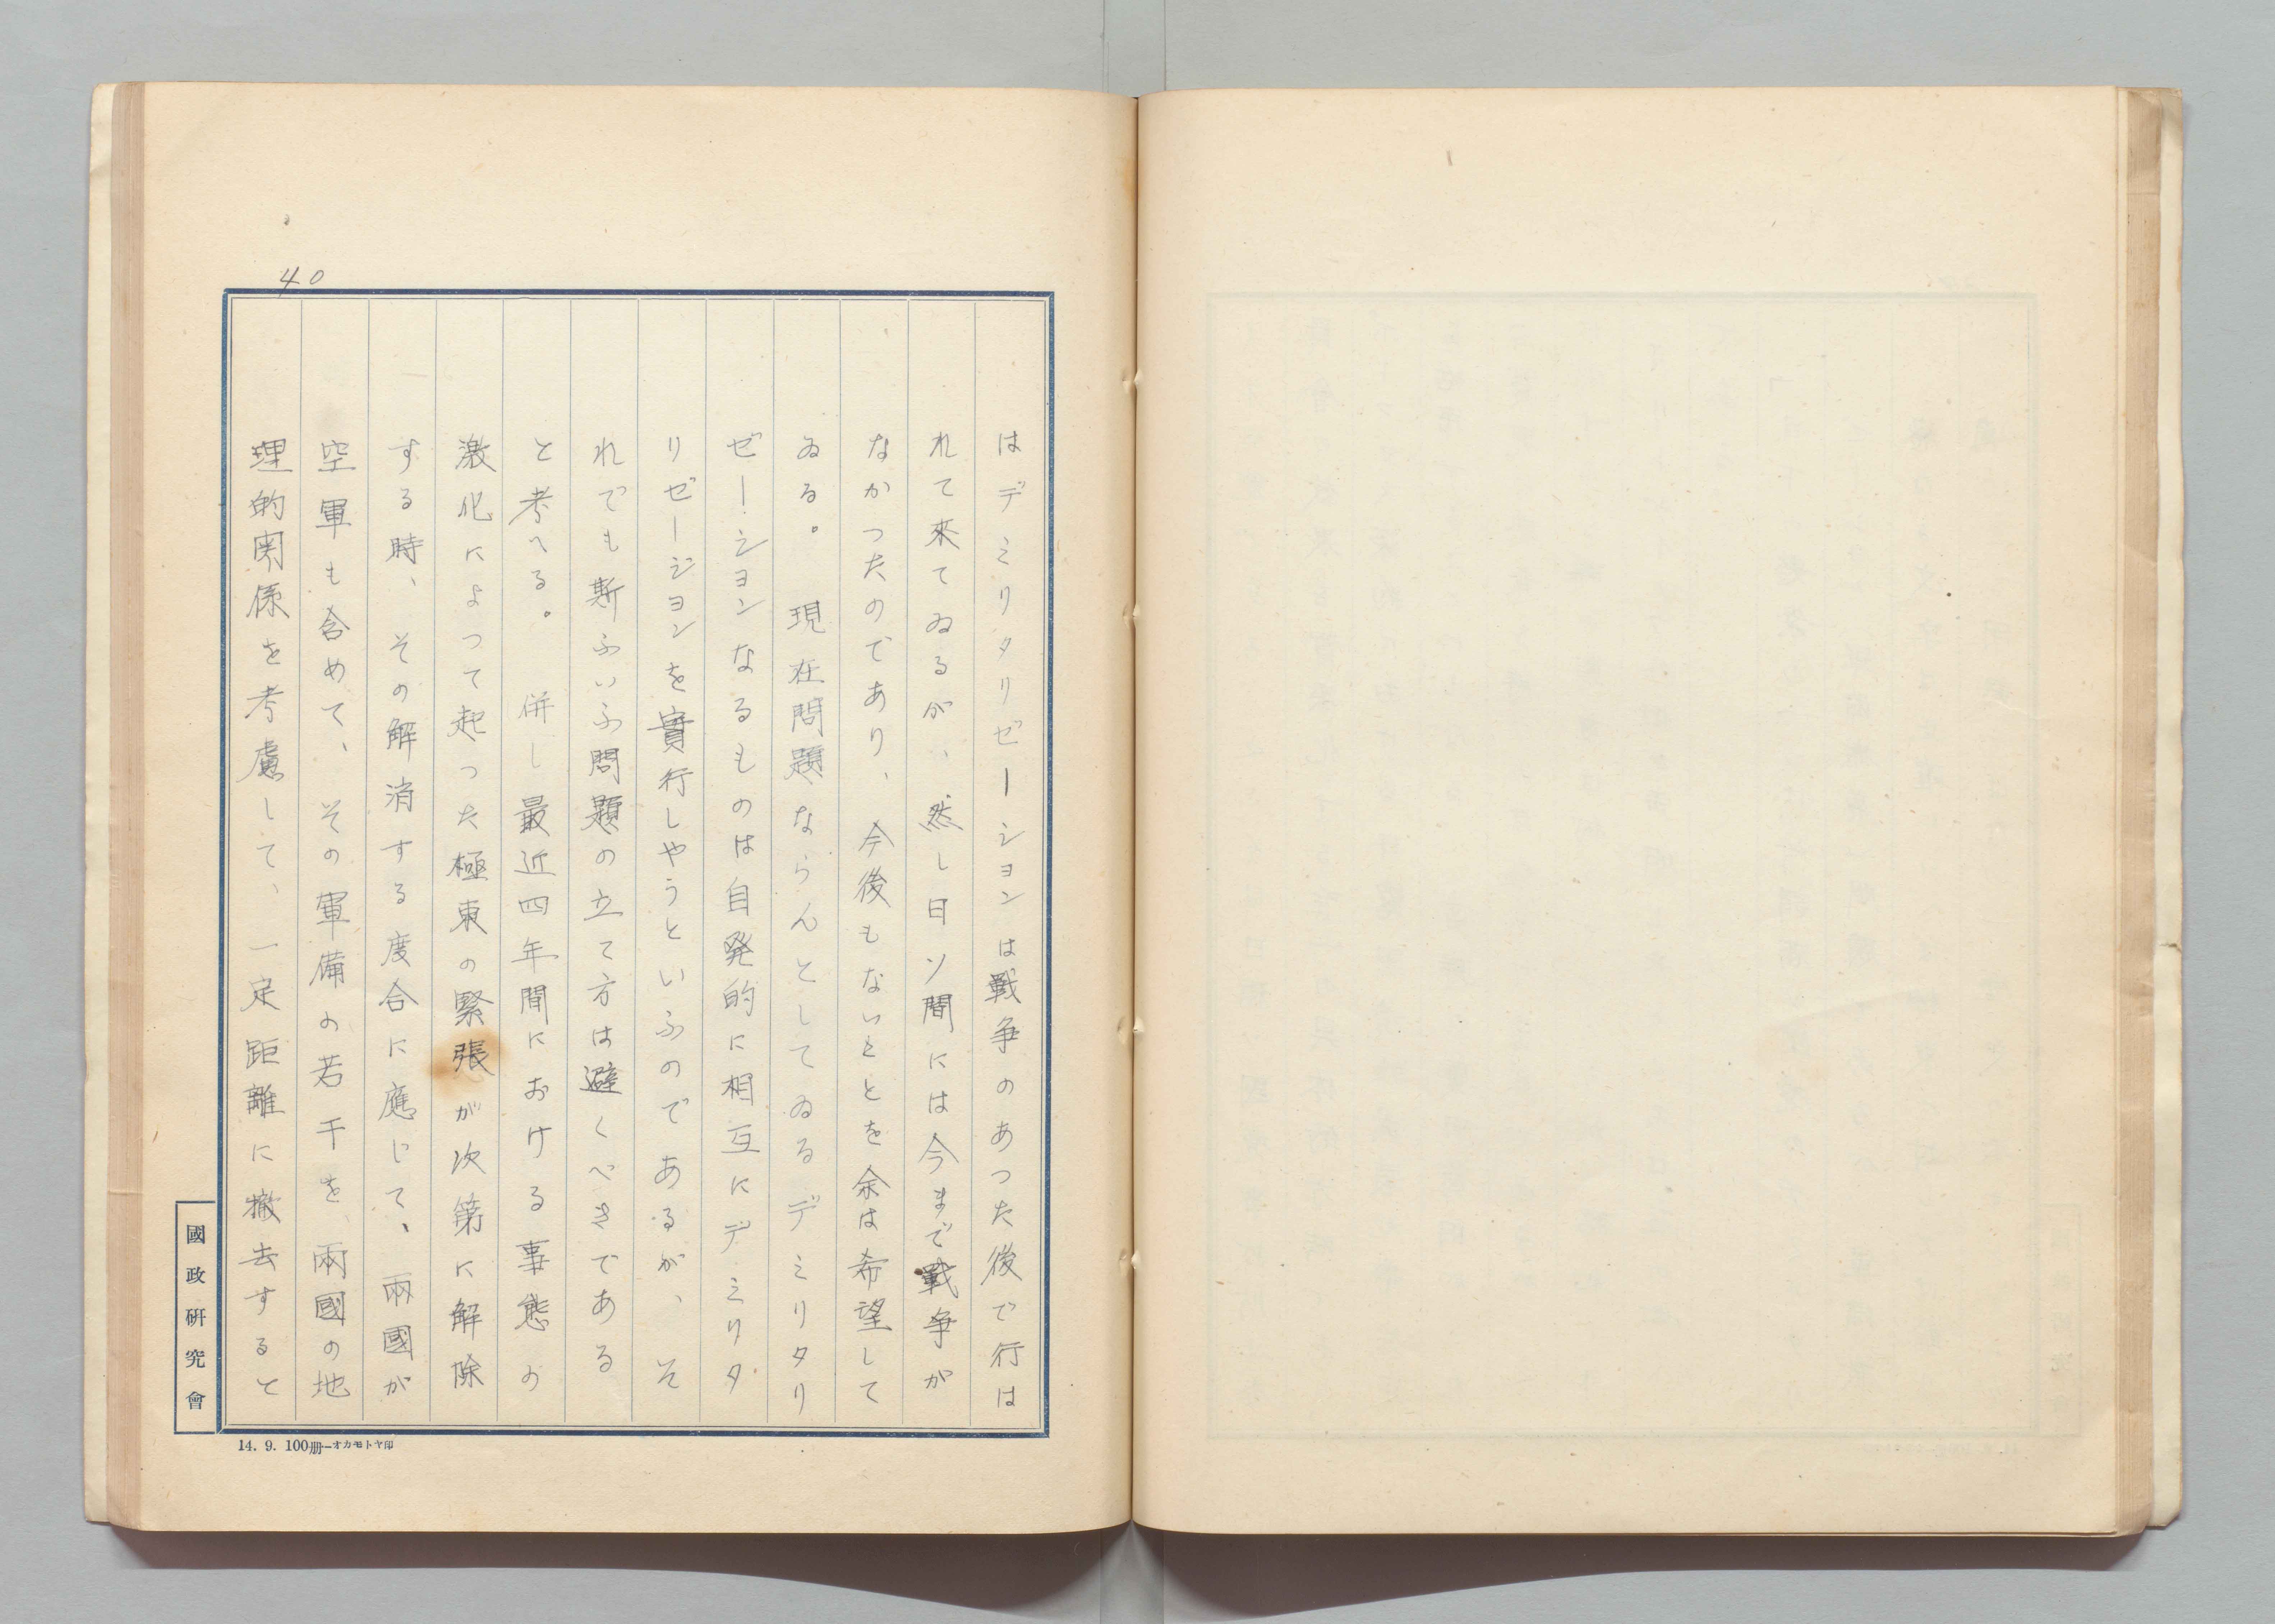 40
はデミリタリゼーションは戰争のあつた後で行は
れて來てゐるが、然し日ソ間には今まで戰争が
なかつたのであり、今後もないことを余は希望して
ゐる。現在問題ならんとしてゐるデミリタリ
ゼーションなるものは自発的に相互にデミリタ
リゼージョンを實行しやうといふのであるが、そ
れでも斯ふいふ問題の立て方は避くべきである
と考へる。併し最近四年間における事態の
激化によつて起つた極東の緊張が次第に解除
する時、その解消する度合に應じて、兩國が
空軍も含めて、その軍備の若干を兩國の地
理的関係を考慮して、一定距離に撤去すると
國政硏究會
14. 9. 100册—オカモトヤ印